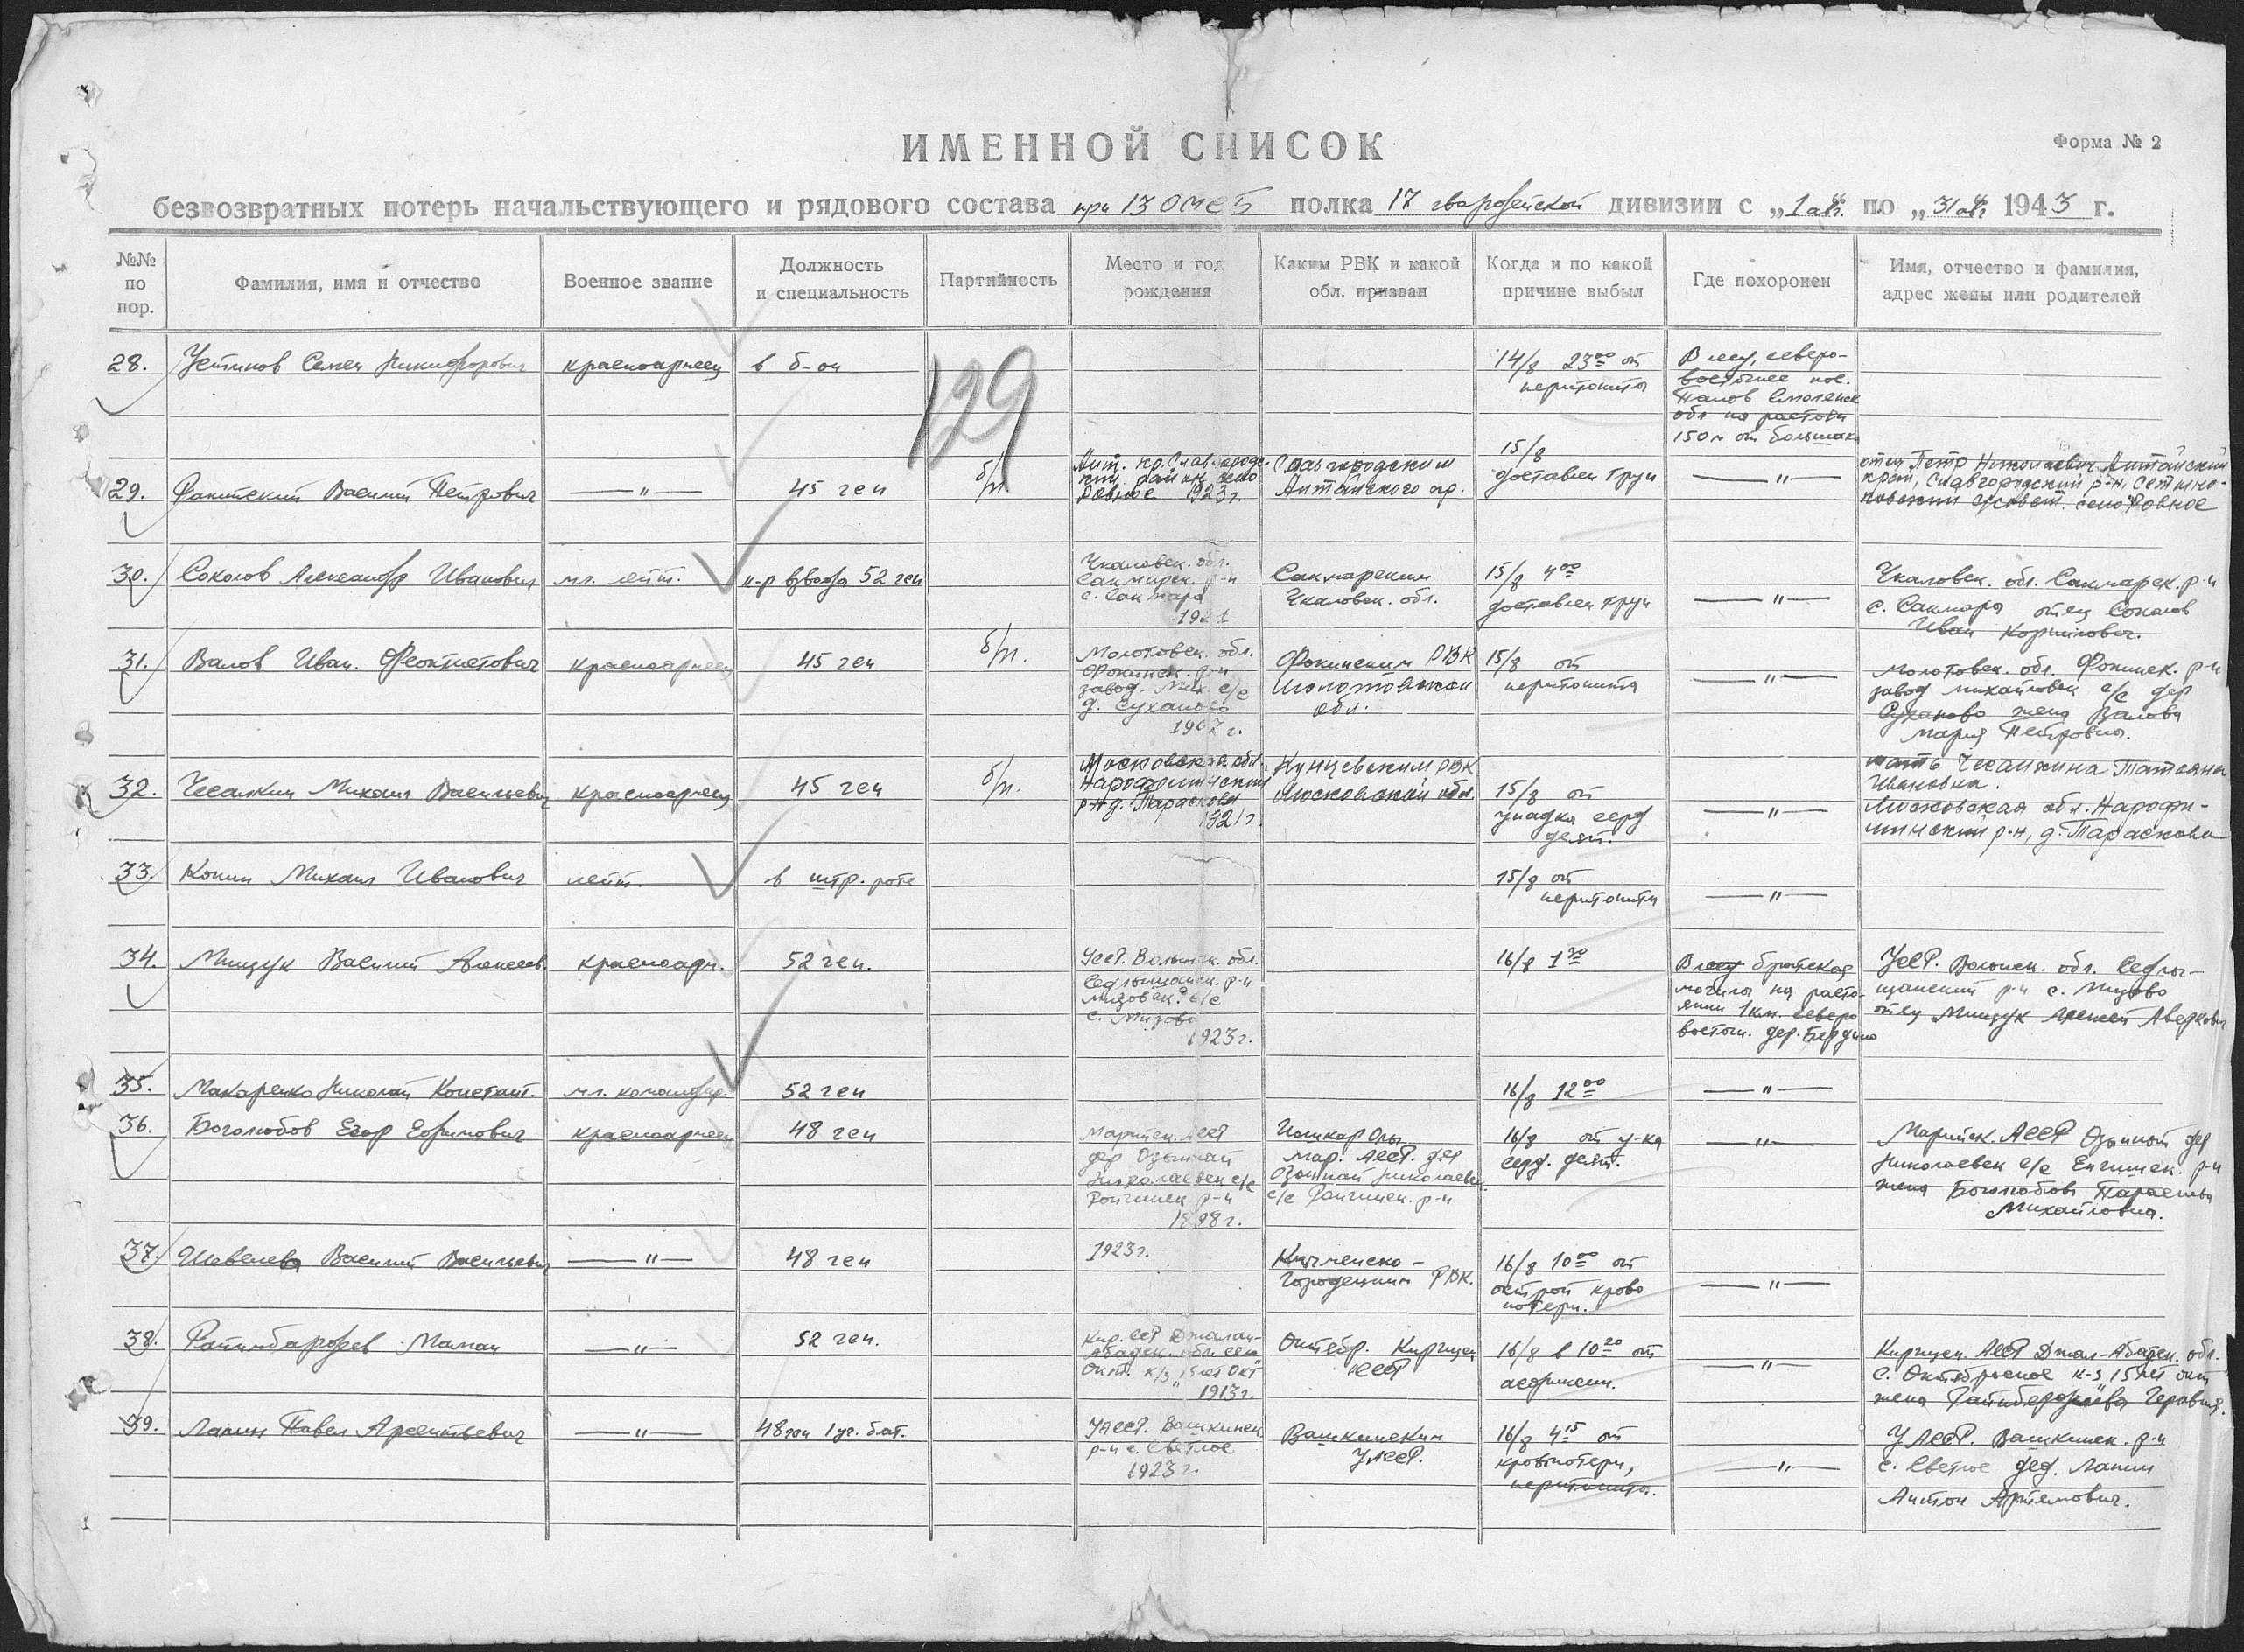 ИМЕННОЙ СПИСОК
Форма № 2
безвозвратных потерь начальствующего и рядового состава при 13 ОМСБ полка 17 гвардейской дивизии с „1 авг. по „31 авг 1943 г.
№№ по пор.
Фамилия, имя и отчество
Военное звание
Должность и специальность
Партийность
Место и год рождения
Каким РВК и какой обл. призван
Когда и по какой причине выбыл
Где похоронен
Имя, отчество и фамилия, адрес жены или родителей
129
28. Устинов Семен Никифорович
красноармеец
в б-он
14/8 23 00 от
перитонита
В лесу, северо-
восточнее пос.
Смоленск
обл на растоян
150 м от большака
29. Василий Петрович
— " —
45 гсп
б/п.
Алт. кр. Славгородс-
кий район село
Ровное 1923 г.
Славгородским
Алтайского кр.
15/8
доставлен труп
— " —
отец Петр Николаевич Алтайский
край, Славгородский р-н,
сельсовет. село Ровное
30. Соколов Александр Иванович
мл. лейт.
к-р взвода 52 гсп
Чкаловск. обл.
Сакмарск. р-н
с. Сакмара
1921
Сакмарским
Чкаловск. обл.
15/8 4 00
доставлен труп
— " —
Чкаловск. обл. Сакмарск. р-н
с. Сакмара отец Соколов
Иван
31. Валов Иван. Феоктистович
красноармеец
45 гсп
б/п.
Молотовск. обл.
Фокинск. р-н
завод. Мих с/с
д. Суханово
1907 г.
Фокинским РВК
Молотовской
обл.
15/8 от
перитонита
— " —
Молотовск. обл. Фокинск. р-н
завод михайловск с/с дер
Суханово жена Валова
Мария Петровна.
32. Чесалкин Михаил Васильевич
красноармеец
45 гсп
б/п.
Московская обл.
Нарофоминский
р-н д. Параскова
1921 г.
Кунцевским РВК
Московской обл.
15/8 от
упадка серд
деят.
— " —
мать Чесалкина Татьяна
Ивановна.
Московская обл. Нарофо-
минский р-н, д. Параскова
33. Конин Михаил Иванович
лейт.
в штр. роте
15/8 от
перитонита
— " —
34. Мищук Василий Алексеев.
красноарм.
52 гсп.
УССР. Волынск. обл.
р-н
с/с
с. Мизово
1923 г.
16/8 1 20
В лесу братская
могила на расто-
янии 1 км. северо
восточ. дер.
УССР. Волынск. обл. Седлы-
щанский р-н с. Мизово
отец Мищук Алексей
35. Макаренко Николай Констант.
мл. командир.
52 гсп
16/8 12 00
— " —
36. Боголюбов Егор Ефимович
красноармеец
48 гсп
Марийск. АССР
дер
Николаевск с/с
р-н
1898 г.
Йошкар Олы
Мар. АССР. дер
Николаевск.
с/с р-н
16/8 от у-ка
серд. деят.
— " —
Марийск. АССР дер
Николаевск с/с р-н
жена Боголюбова
Михайловна.
37. Шевелева Василий Васильевич
— " —
48 гсп
1923 г.
Кичменско -
Городецким РВК.
16/8 10 00 от
острой крово
потери.
— " —
38. Маман
— " —
52 гсп.
Кир. ССР Джалал-
Абадск. обл. село
Окт. к/з „15 лет Окт"
1913 г.
Октябр. Киргизск
ССР
16/8 в 10 20 от
асфиксии.
— " —
Киргизск. АССР Джал-Абадск. обл.
с. Октябрьское к-з „15 лет окт
жена
39. Лапин Павел Арсентьевич
— " —
48 гсп 1 уч. бат.
УАССР. Вашкинск
р-н с. Светлое
1923 г.
Вашкинским
УАССР.
16/8 4 15 от
кровопотери,
перитонита.
— " —
УАССР. Вашкинск. р-н
с. Светлое дед. Лапин
Антон Артемович.